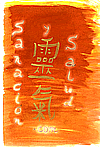 Sanación
y
Salud
靈
元
氣